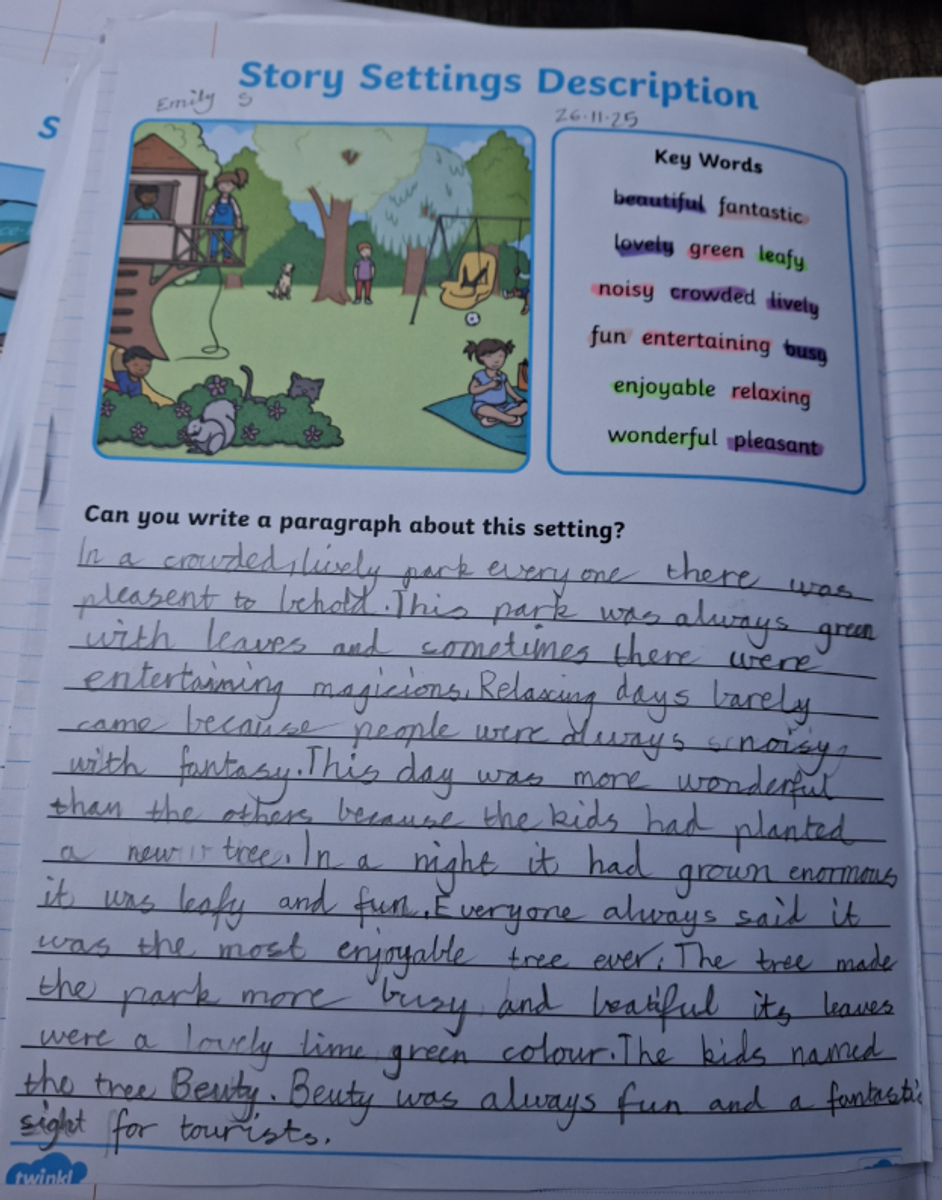 Story Settings Description
Emily S
26.11.25
S
Key Words
beautiful fantastic
lovely green leafy
noisy crowded lively
fun entertaining busy
enjoyable relaxing
wonderful pleasant
Can you write a paragraph about this setting?
In a crowded, lively park everyone there was
pleasent to behold. This park was always green
with leaves and sometimes there were
entertaining magicions. Relaxing days barely
came because people were always noisy,
with fantasy. This day was more wonderful
than the others because the kids had planted
a new tree. In a night it had grown enormous
it was leafy and fun. Everyone always said it
was the most enjoyable tree ever. The tree made
the park more busy and beatiful its leaves
were a lovely lime green colour. The kids named
the tree Beuty. Beuty was always fun and a fantastic
sight for tourists.
twinkl